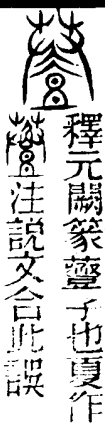 釋元闕篆子也夏作
注説文合此誤